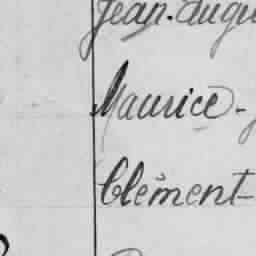 Jean-Augu
Maurice-
Clément-